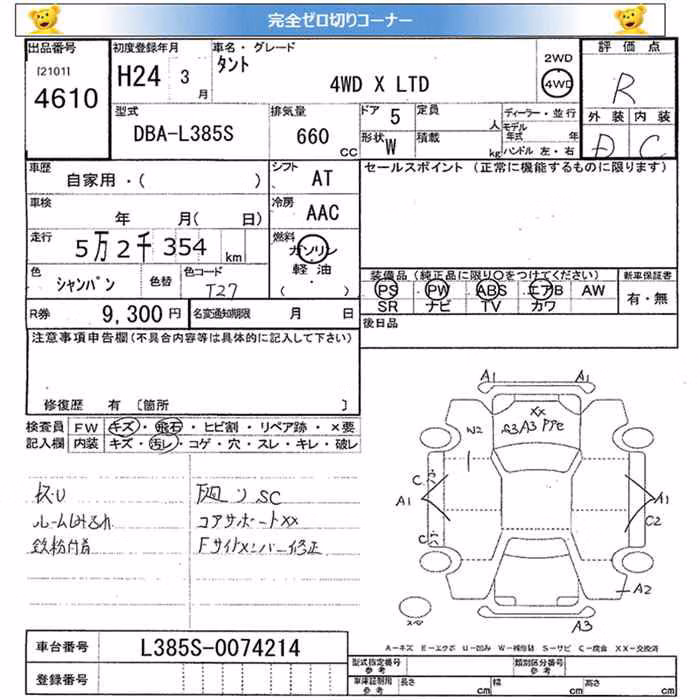 完全ゼロ切りコーナー
出品番号
初度登録年月
車名・グレード
評価点
[2101]
4610
H24 3 月
タント
4WD X LTD
2WD
4WD
R
外装 内装
D C
型式
DBA-L385S
排気量
660 CC
ドア 5
定員 人
形状 W
積載 kg
ディーラー・並行
モデル年式 年
ハンドル 左・右
車歴
自家用・( )
シフト AT
セールスポイント (正常に機能するものに限ります)
車検
年 月( 日)
冷房 AAC
走行
5万2千354 km
燃料
ガソリン
軽油
( )
色
シャンパン
色替
色コード
T27
装備品 (純正品に限り〇をつけてください)
新車保証書
PS PW ABS エアB AW
SR ナビ TV カワ
有・無
R券 9,300円
名変通知期限 月 日
後日品
注意事項申告欄(不具合内容等は具体的に記入して下さい)
修復歴 有 [箇所 ]
検査員 FW キズ・飛石・ヒビ割・リペア跡・×要
記入欄 内装 キズ・汚レ・コゲ・穴・スレ・キレ・破レ
ルームしみ汚れ
鉄粉付着
SC
コアサポートXX
Fサイドメンバー修正
A1 A1
XX
A3 A3
W2
C
A1
C
A1
C2
A2
A3
スペ
A-キズ E-エクボ U-凹み W-補修跡 S-サビ C-腐食 XX-交換済
車台番号 L385S-0074214
登録番号
型式指定番号
参考
類別区分番号
参考
車庫証明用
参考
長さ cm 幅 cm 高さ cm